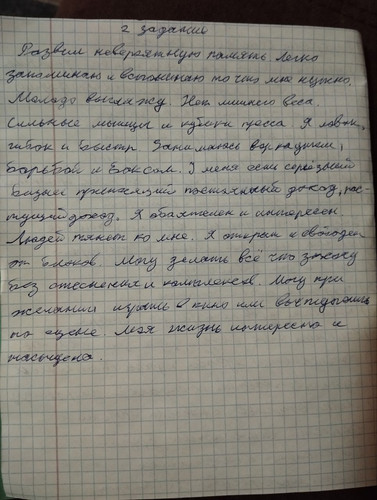 2 задание
Развил невероятную память. Легко
запоминаю и вспоминаю то что мне нужно.
Молодо выгляжу. Нет лишнего веса.
Сильные мышцы и кубики пресса. Я ловок,
гибок и быстр. Занимаюсь воркаутом,
борьбой и боксом. У меня есть серьёзный
бизнес приносящий постоянный доход, рас-
тущий доход. Я обаятелен и интересен.
Людей тянет ко мне. Я открыт и свободен
от блоков. Могу делать всё что захочу
без стеснения и комплексов. Могу при
желании играть в кино или выступать
на сцене. Моя жизнь интересна и
насыщена.